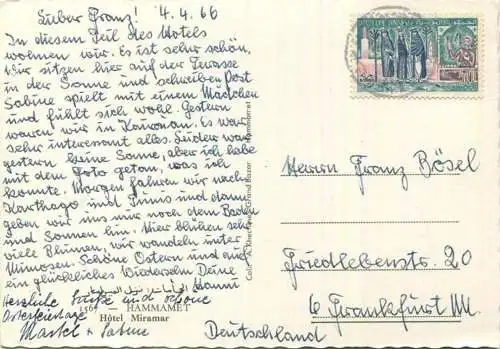 Lieber Franz! 4.4.66
In diesem Teil des Hotels
wohnen wir. Es ist sehr schön,
Wir sitzen hier auf der Terasse
in der Sonne und schreiben Post
Sabine spielt mit einem Mädchen
und fühlt sich wohl. Gestern
waren wir in Kairouan. Es war
sehr interessant alles. Leider war
gestern keine Sonne, aber ich habe
mit dem Foto getan, was ich
konnte. Morgen fahren wir nach
Karthago und Tunis und dann
geben wir uns nur noch dem Baden
und Sonnen hin. Hier blühen sehr
viele Blumen, wir wandeln unter
Mimosen. Schöne Ostern und auf
ein glückliches Wiedersehn Deine
Hanni
Herzliche Grüße und schöne
Osterfeiertage
+ Sabine
1507 — HAMMAMET
Hôtel Miramar
Herrn Franz Bösel
Friedlebenstr. 20
6 Frankfurt/M.
Deutschland